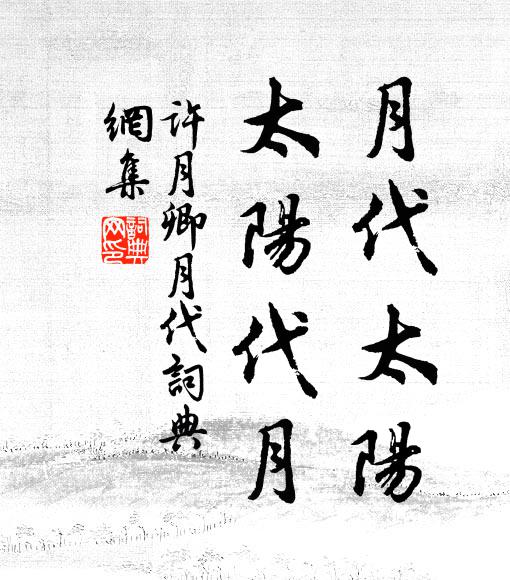 月代太陽
太陽代月
許月卿月代詞典
網集
詞典
网印